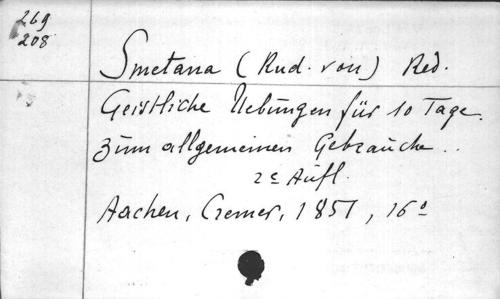 269
208
Smetana (Rud. von) Red.
Geistliche Uebungen für 10 Tage.
zum allgemeinen Gebrauche..
2e Aufl.
Aachen, Cremer, 1851, 16°